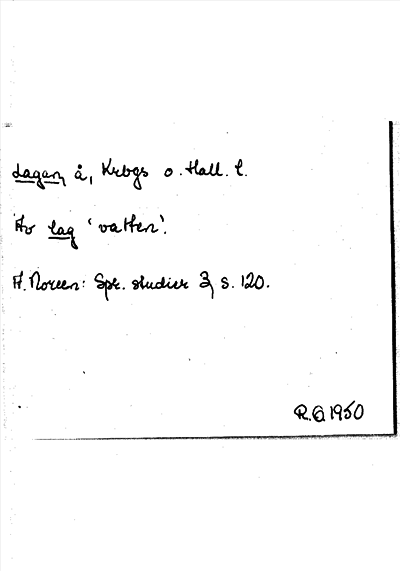 Lagan, å, Krbgs o. Hall. l.
Av lag 'vatten'.
A. Noreen: Spr. studier 3, s. 120.
R.G 1950